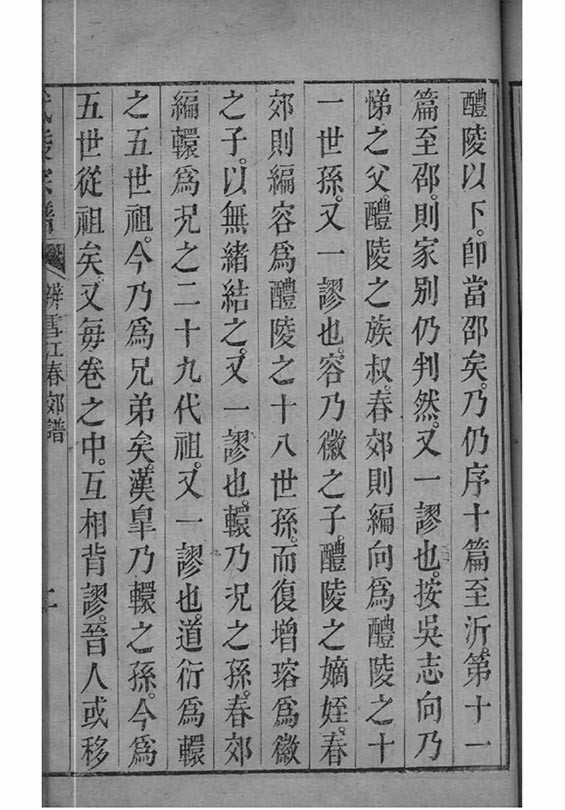 醴陵以下。卽當邵矣。乃仍序十篇至沂。第十一
篇至邵。則家別仍判然。又一謬也。按吳志向乃
悌之父醴陵之族叔。春郊則編向爲醴陵之十
一世孫。又一謬也。容乃徽之子。醴陵之嫡姪。春
郊則編容爲醴陵之十八世孫。而復增瑢爲徽
之子。以無緒結之。又一謬也。轘乃況之孫。春郊
編轘爲況之二十九代祖。又一謬也。道衍爲轘
之五世祖。今乃爲兄弟矣。漢皐乃轘之孫。今爲
五世從祖矣。又每卷之中。互相背謬。晉人或移
宗譜
辨雪江春郊譜
二